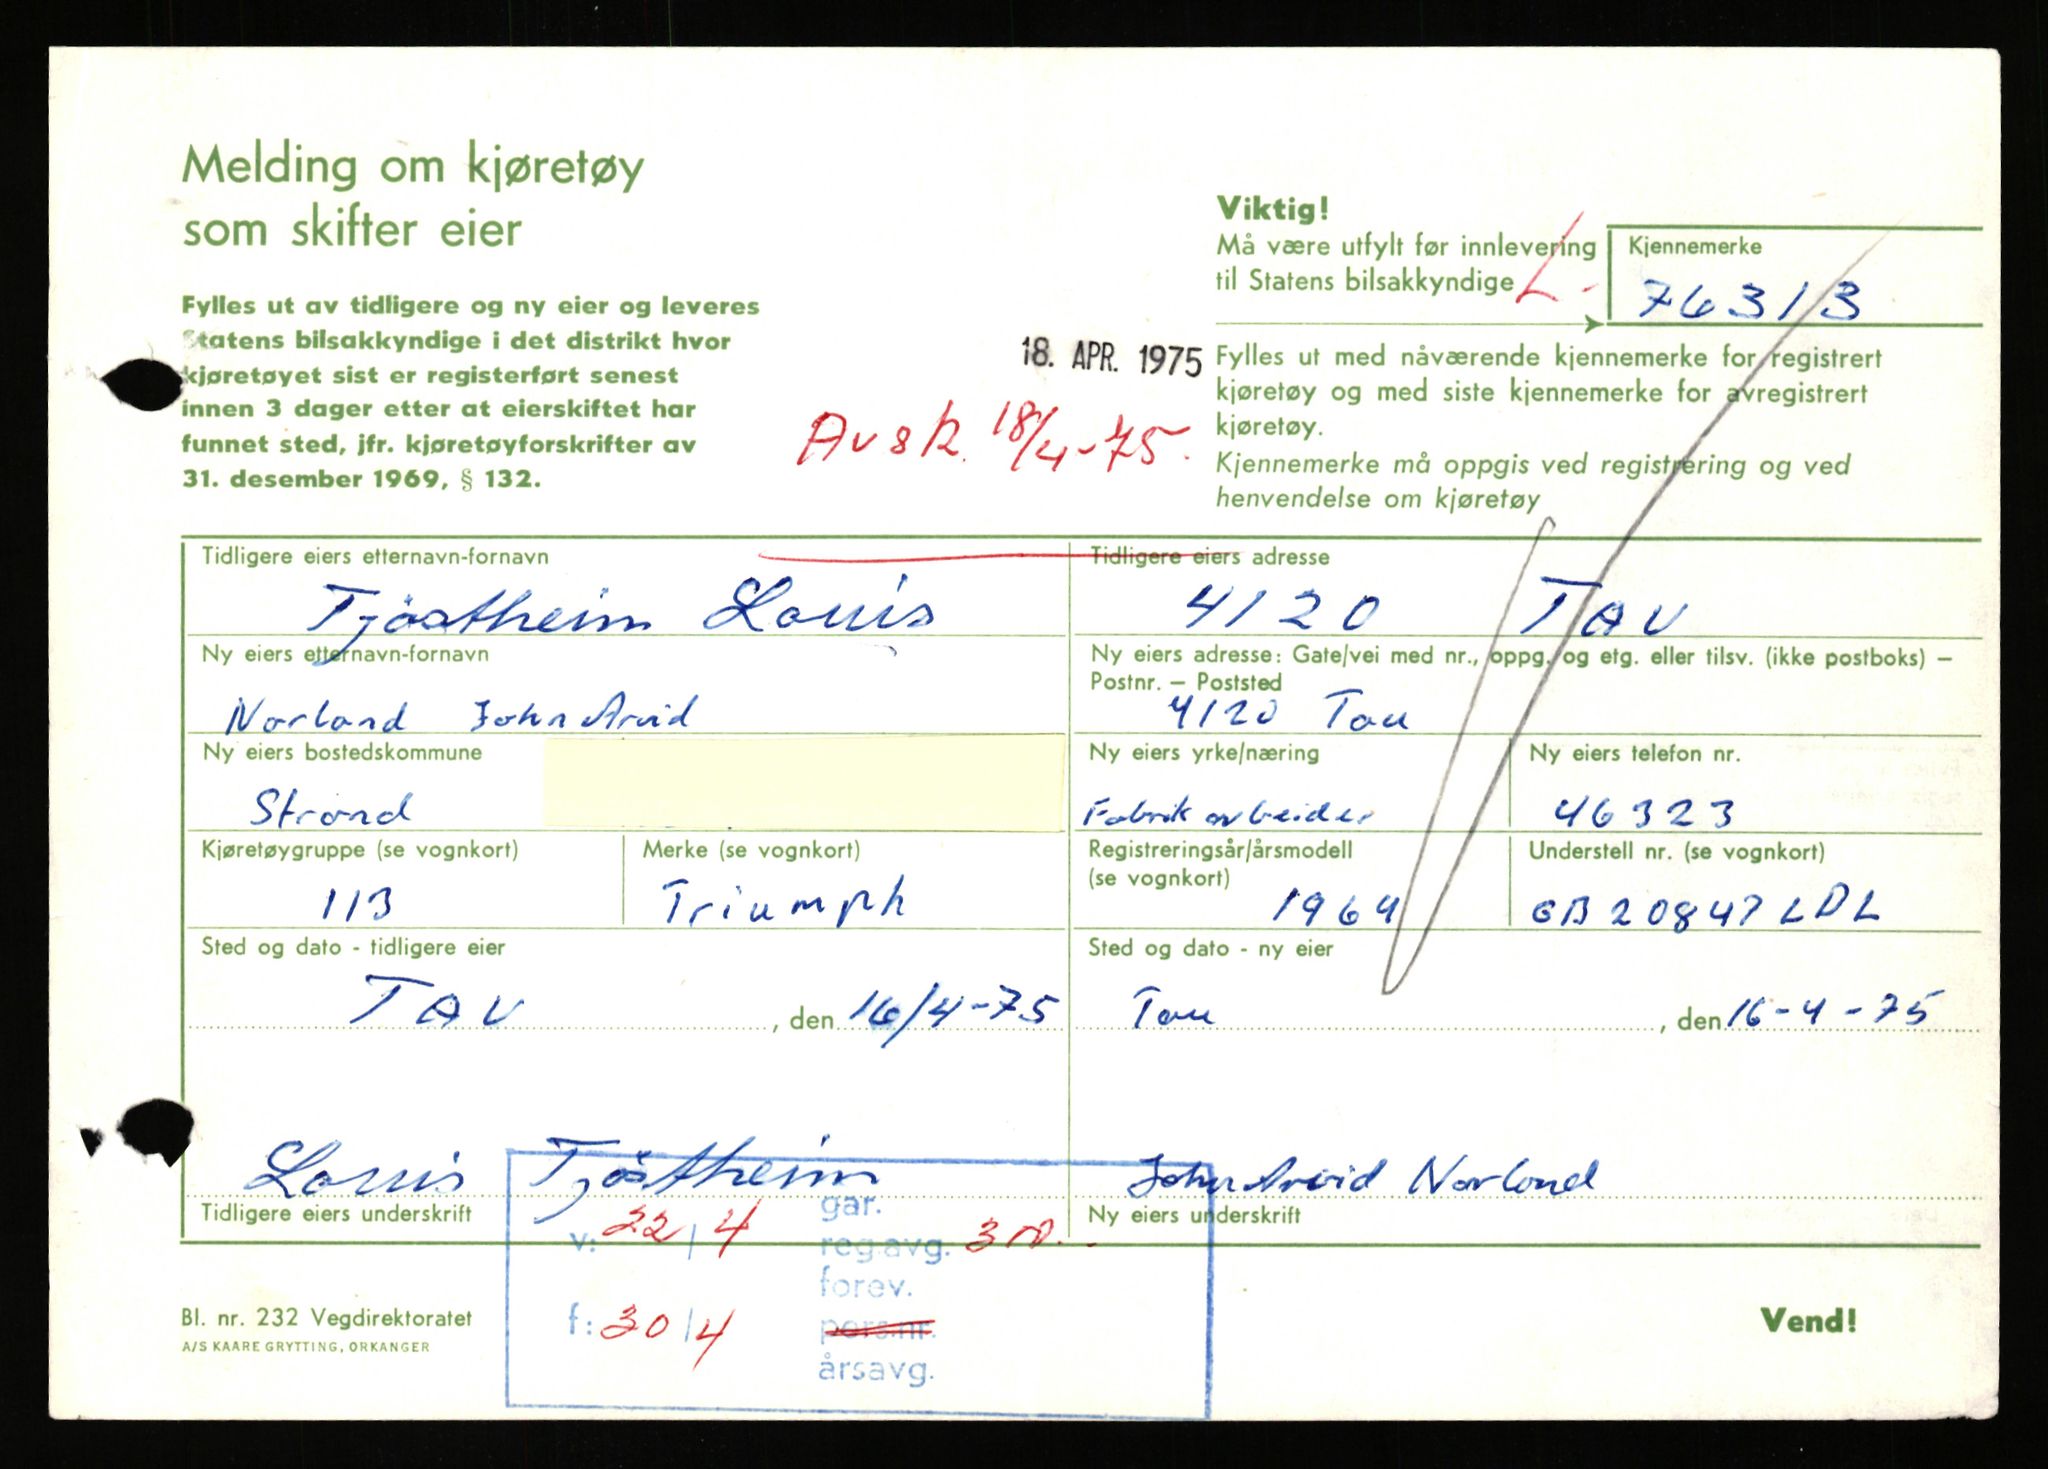 Melding om kjøretøy
som skifter eier
Fylles ut av tidligere og ny eier og leveres
Statens bilsakkyndige i det distrikt hvor
kjøretøyet sist er registerført senest
innen 3 dager etter at eierskiftet har
funnet sted, jfr. kjøretøyforskrifter av
31. desember 1969, § 132.
18. APR. 1975
Avsk. 18/4-75.
Viktig!
Må være utfylt før innlevering
til Statens bilsakkyndige L-
Kjennemerke
76313
Fylles ut med nåværende kjennemerke for registrert
kjøretøy og med siste kjennemerke for avregistrert
kjøretøy.
Kjennemerke må oppgis ved registrering og ved
henvendelse om kjøretøy
Tidligere eiers etternavn-fornavn
Tjöstheim Louis
Tidligere eiers adresse
4120 TAU
Ny eiers etternavn-fornavn
Norland John Arvid
Ny eiers adresse: Gate/vei med nr., oppg. og etg. eller tilsv. (ikke postboks) –
Postnr. – Poststed
4120 Tau
Ny eiers bostedskommune
Strand
Ny eiers yrke/næring
Fabrikarbeider
Ny eiers telefon nr.
46323
Kjøretøygruppe (se vognkort)
113
Merke (se vognkort)
Triumph
Registreringsår/årsmodell
(se vognkort)
1964
Understell nr. (se vognkort)
GB20847LDL
Sted og dato - tidligere eier
TAU, den 16/4-75
Sted og dato - ny eier
Tau, den 16-4-75
Louis Tjöstheim
Tidligere eiers underskrift
John Arvid Norland
Ny eiers underskrift
gar.
v: 22/4 reg.avg.
forev.
f: 30/4 pers.nr.
årsavg.
Bl. nr. 232 Vegdirektoratet
A/S KAARE GRYTTING, ORKANGER
Vend!